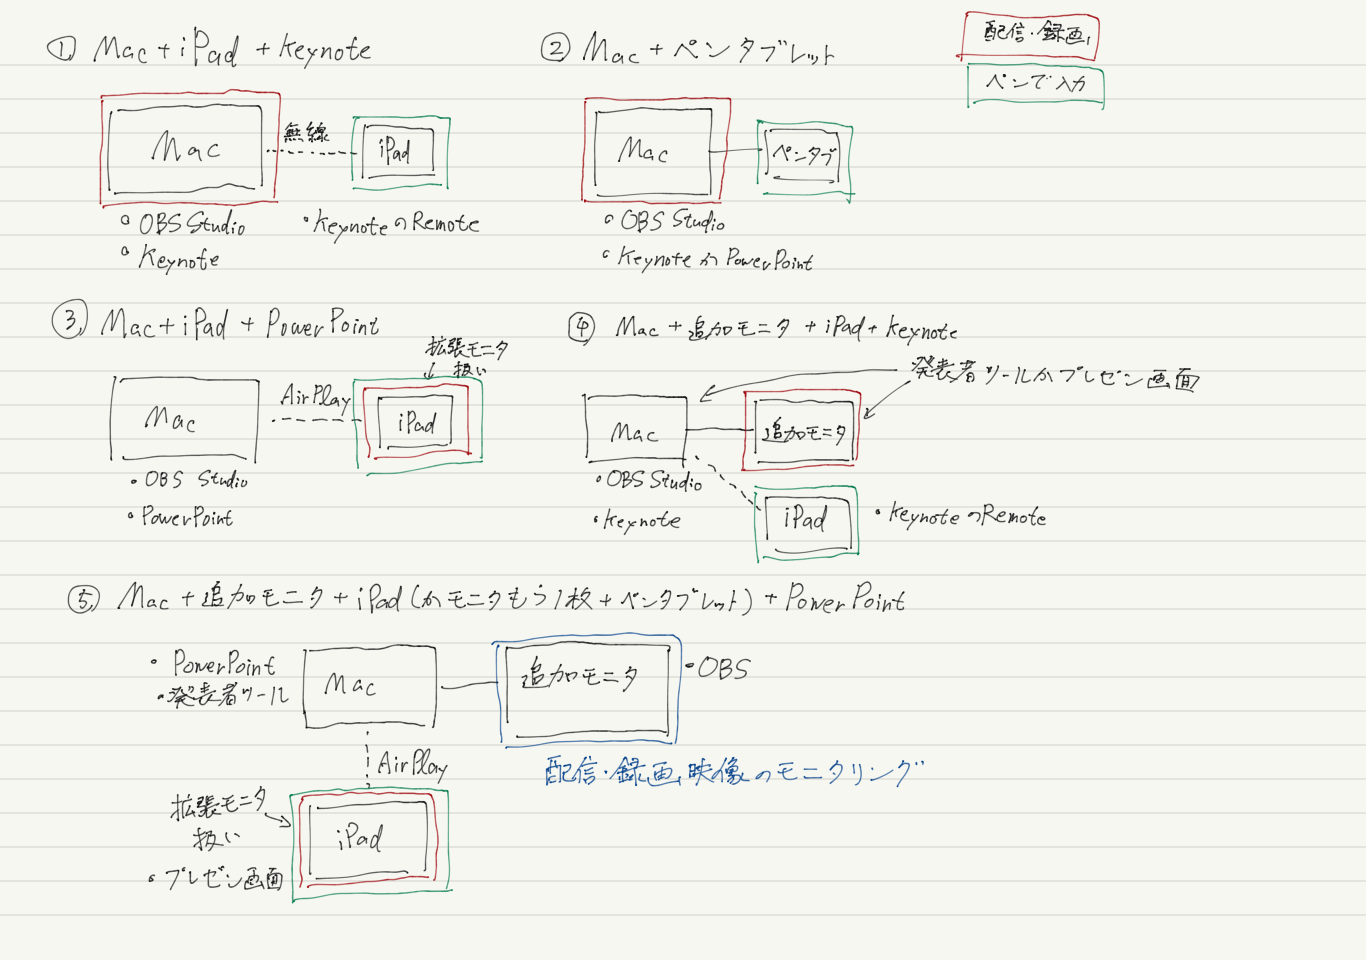 ① Mac+iPad+Keynote
Mac
無線
iPad
• OBS Studio
• Keynote
• KeynoteのRemote
② Mac+ペンタブレット
Mac
ペンタブ
• OBS Studio
• KeynoteかPowerPoint
配信・録画
ペンで入力
③ Mac+iPad+PowerPoint
Mac
AirPlay
拡張モニタ
扱い
iPad
• OBS Studio
• PowerPoint
④ Mac+追加モニタ+iPad+Keynote
発表者ツールかプレゼン画面
Mac
追加モニタ
• OBS Studio
• Keynote
iPad
• KeynoteのRemote
⑤ Mac+追加モニタ+iPad(かモニタもう1枚+ペンタブレット)+PowerPoint
• PowerPoint
• 発表者ツール
Mac
追加モニタ
• OBS
配信・録画映像のモニタリング
AirPlay
拡張モニタ
扱い
iPad
• プレゼン画面